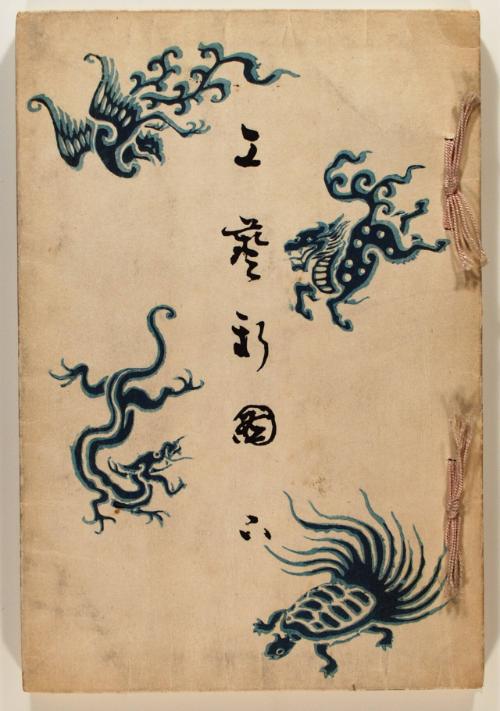 工藝新圖下